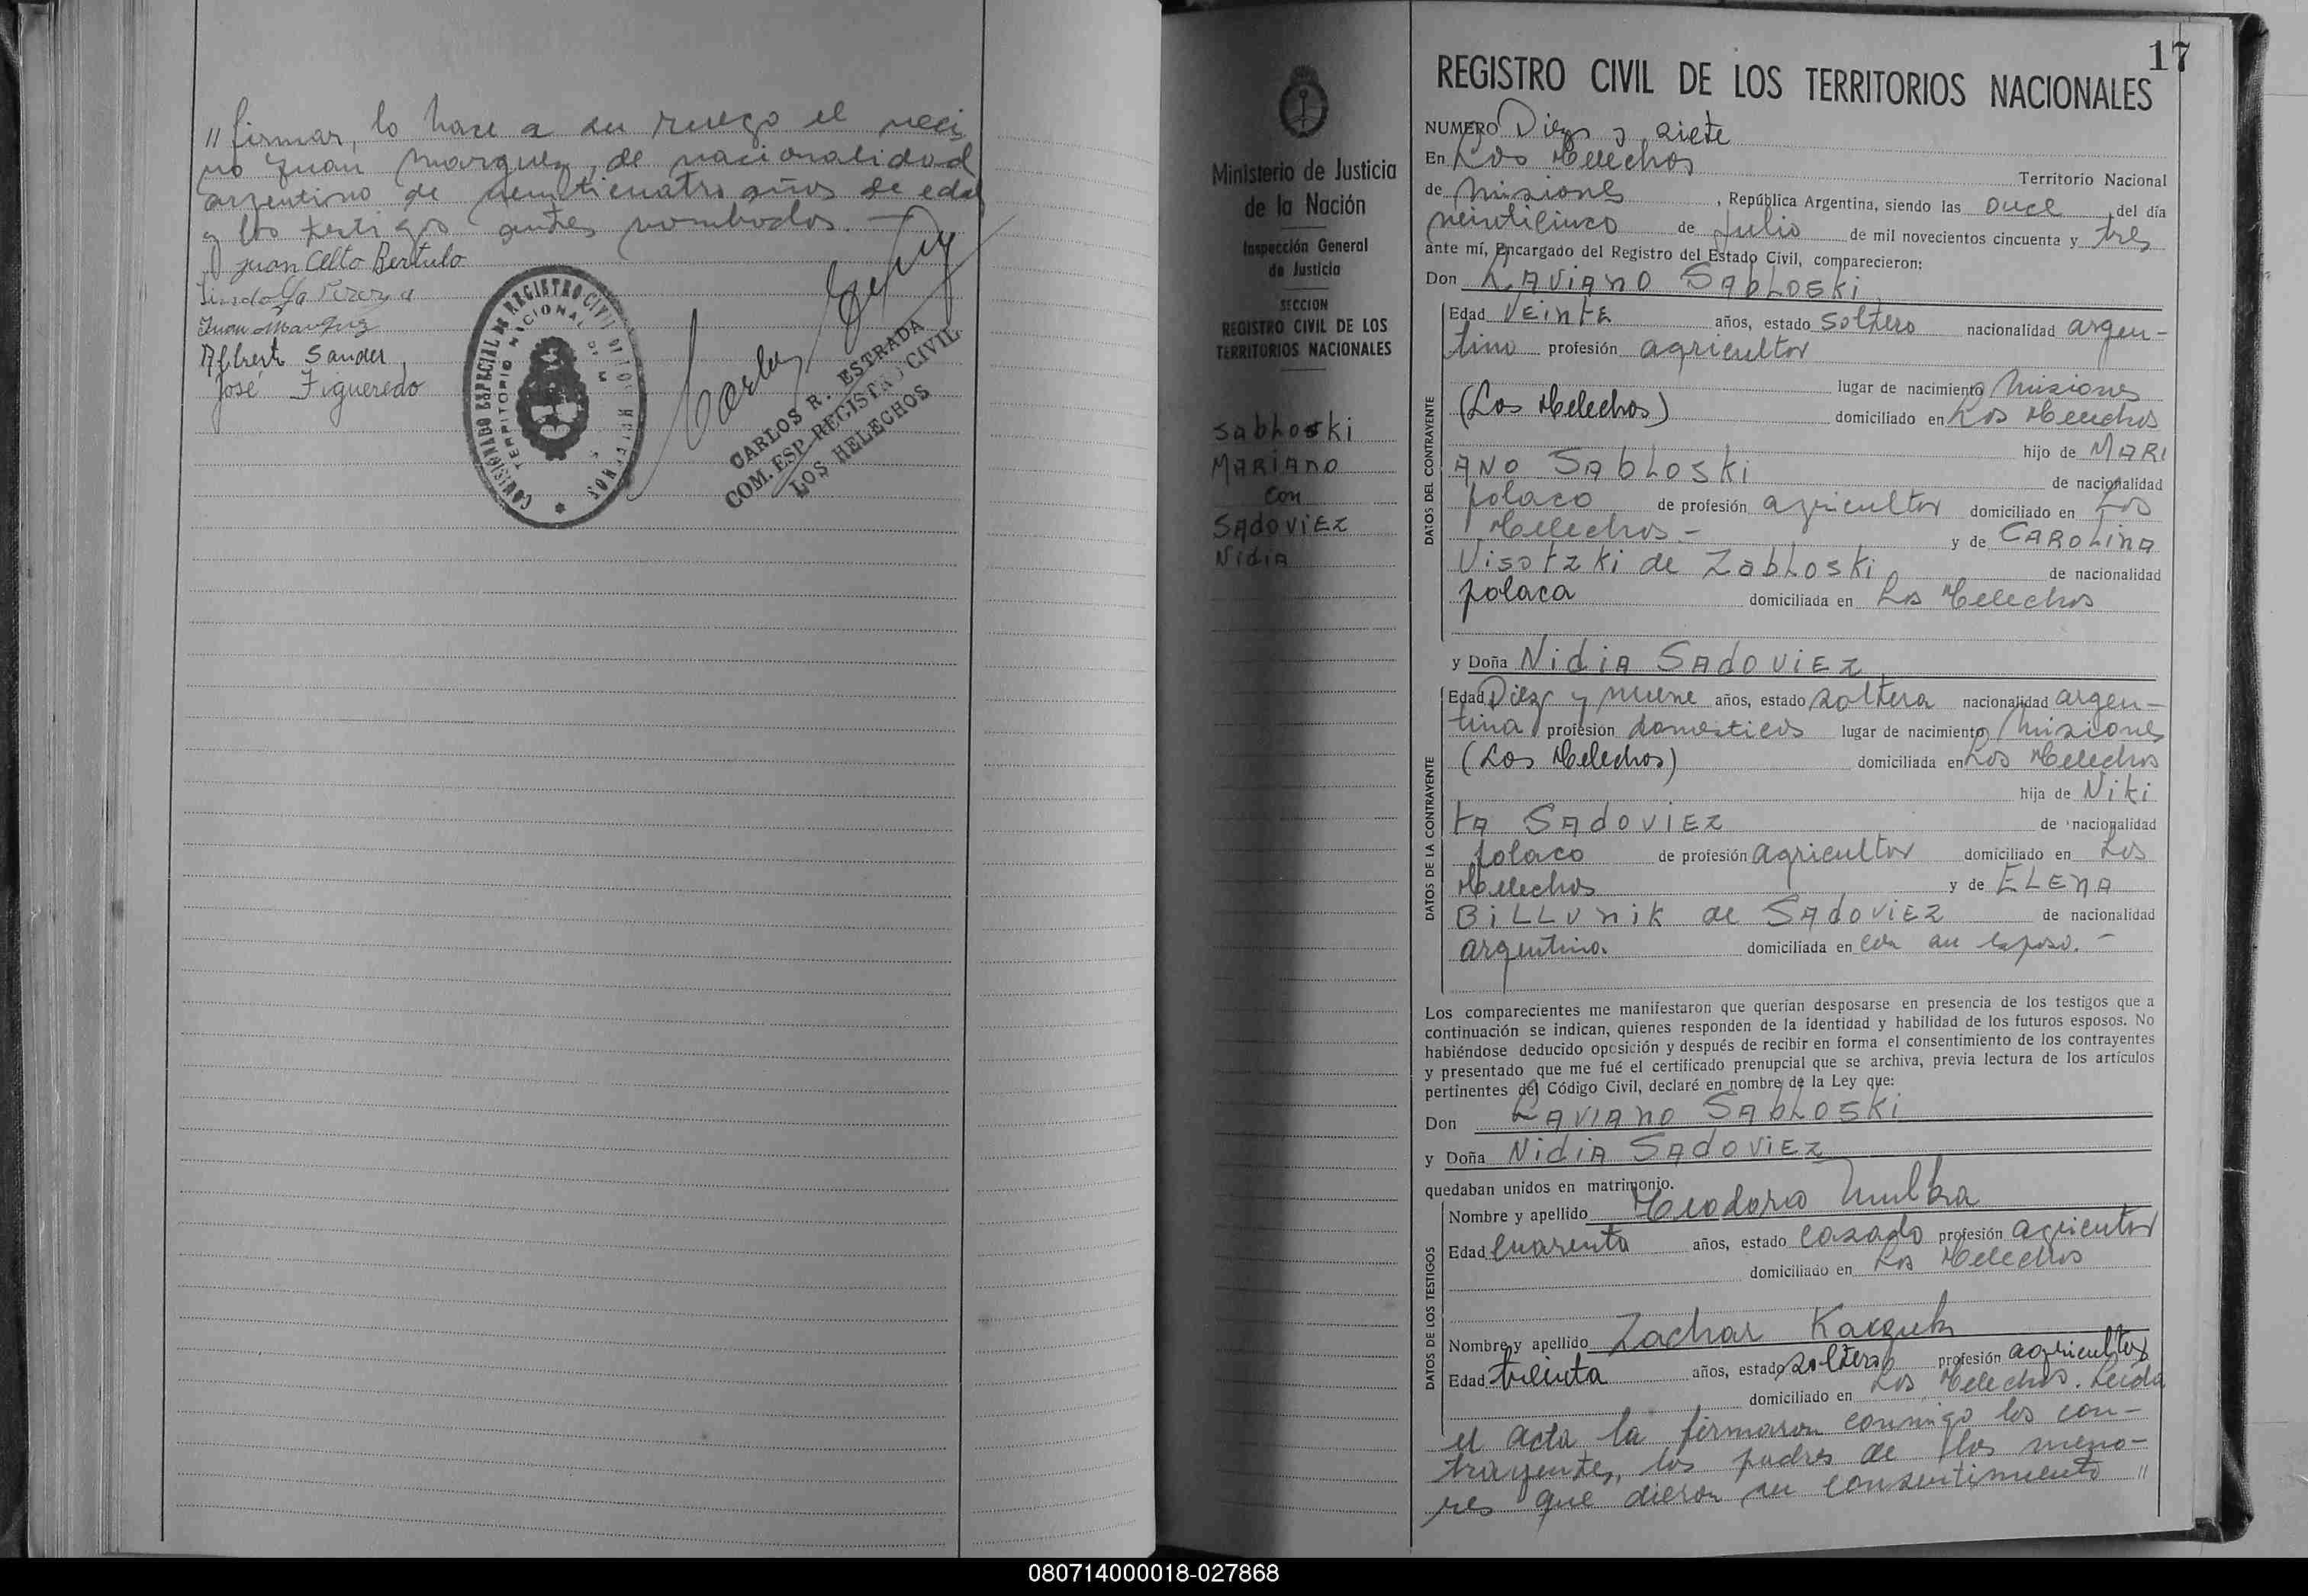 " firmar, lo hace a su ruego el veci
no Juan Marquez, de nacionalidad
argentino de veinticuatro años de edad
y los testigos antes nombrados. —
Juan Celto Bertulo
Lindolfa Pereyra
Juan Marquez
Albert Sander
José Figueredo
COMISIONADO ESPECIAL DE REGISTRO CIVIL
TERRITORIO NACIONAL DE M
CARLOS R. ESTRADA
COM. ESP. REGISTRO CIVIL
LOS HELECHOS
17
Ministerio de Justicia
de la Nación
Inspección General
de Justicia
SECCION
REGISTRO CIVIL DE LOS
TERRITORIOS NACIONALES
Sabloski
MARIANO
con
SADOVIEZ
NidiA
REGISTRO CIVIL DE LOS TERRITORIOS NACIONALES
NUMERO Diez y siete
En Los Helechos
Territorio Nacional
de Misiones, República Argentina, siendo las once del día
veinticinco de Julio de mil novecientos cincuenta y tres
ante mí, Encargado del Registro del Estado Civil, comparecieron:
Don LAVIANO SAbLOSKi
DATOS DEL CONTRAYENTE
Edad VEiNtE años, estado soltero nacionalidad argen-
tino profesión agricultor
lugar de nacimiento Misiones
(Los Helechos) domiciliado en Los Helechos
hijo de MARI
ANO SAbLOSKi de nacionalidad
polaco de profesión agricultor domiciliado en Los
Helechos.- y de CAROLiNA
Visotzki de Zabloski de nacionalidad
polaca domiciliada en Los Helechos
y Doña NidiA SADOVIEZ
DATOS DE LA CONTRAYENTE
Edad Diez y nueve años, estado soltera nacionalidad argen-
tina profesión domesticos lugar de nacimiento Misiones
(Los Helechos) domiciliada en Los Helechos
hija de Niki
tA SADOVIEZ de nacionalidad
polaco de profesión agricultor domiciliado en Los
Helechos y de ELENA
BiLLUNiK de SADOVIEZ de nacionalidad
argentina domiciliada en con su esposo. -
Los comparecientes me manifestaron que querían desposarse en presencia de los testigos que a
continuación se indican, quienes responden de la identidad y habilidad de los futuros esposos. No
habiéndose deducido oposición y después de recibir en forma el consentimiento de los contrayentes
y presentado que me fué el certificado prenupcial que se archiva, previa lectura de los artículos
pertinentes del Código Civil, declaré en nombre de la Ley que:
Don LAVIANO SAbLOSKi
y Doña NidiA SADOVIEZ
quedaban unidos en matrimonio.
DATOS DE LOS TESTIGOS
Nombre y apellido Teodorio
Edad Cuarenta años, estado casado profesión agricultor
domiciliado en Los Helechos
Nombre y apellido Zachar Kaczuk
Edad treinta años, estado soltero profesión agricultor
domiciliado en Los Helechos. Leida
el acta la firmaron conmigo los con-
trayentes, los padres de los meno-
res que dieron su consentimiento "
080714000018-027868